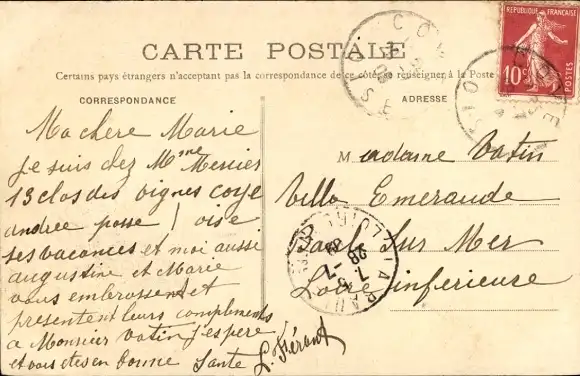 CARTE POSTALE
Certains pays étrangers n'acceptant pas la correspondance de ce côté se renseigner à la Poste
CORRESPONDANCE
ADRESSE
REPUBLIQUE FRANÇAISE
10c
POSTES
Ma chere Marie
Je suis chez Mme Mercier
13 clos des vignes Coye
andree passe / oise
ses vacances et moi aussi
augustine et Marie
vous embrassent et
présentent leurs compliments
a Monsieur Vatin J'espere
et vous etes en bonne Sante L. Féront
Madame Vatin
Villa Emeraude
Sur Mer
Loire inferieuse
COYE
OISE